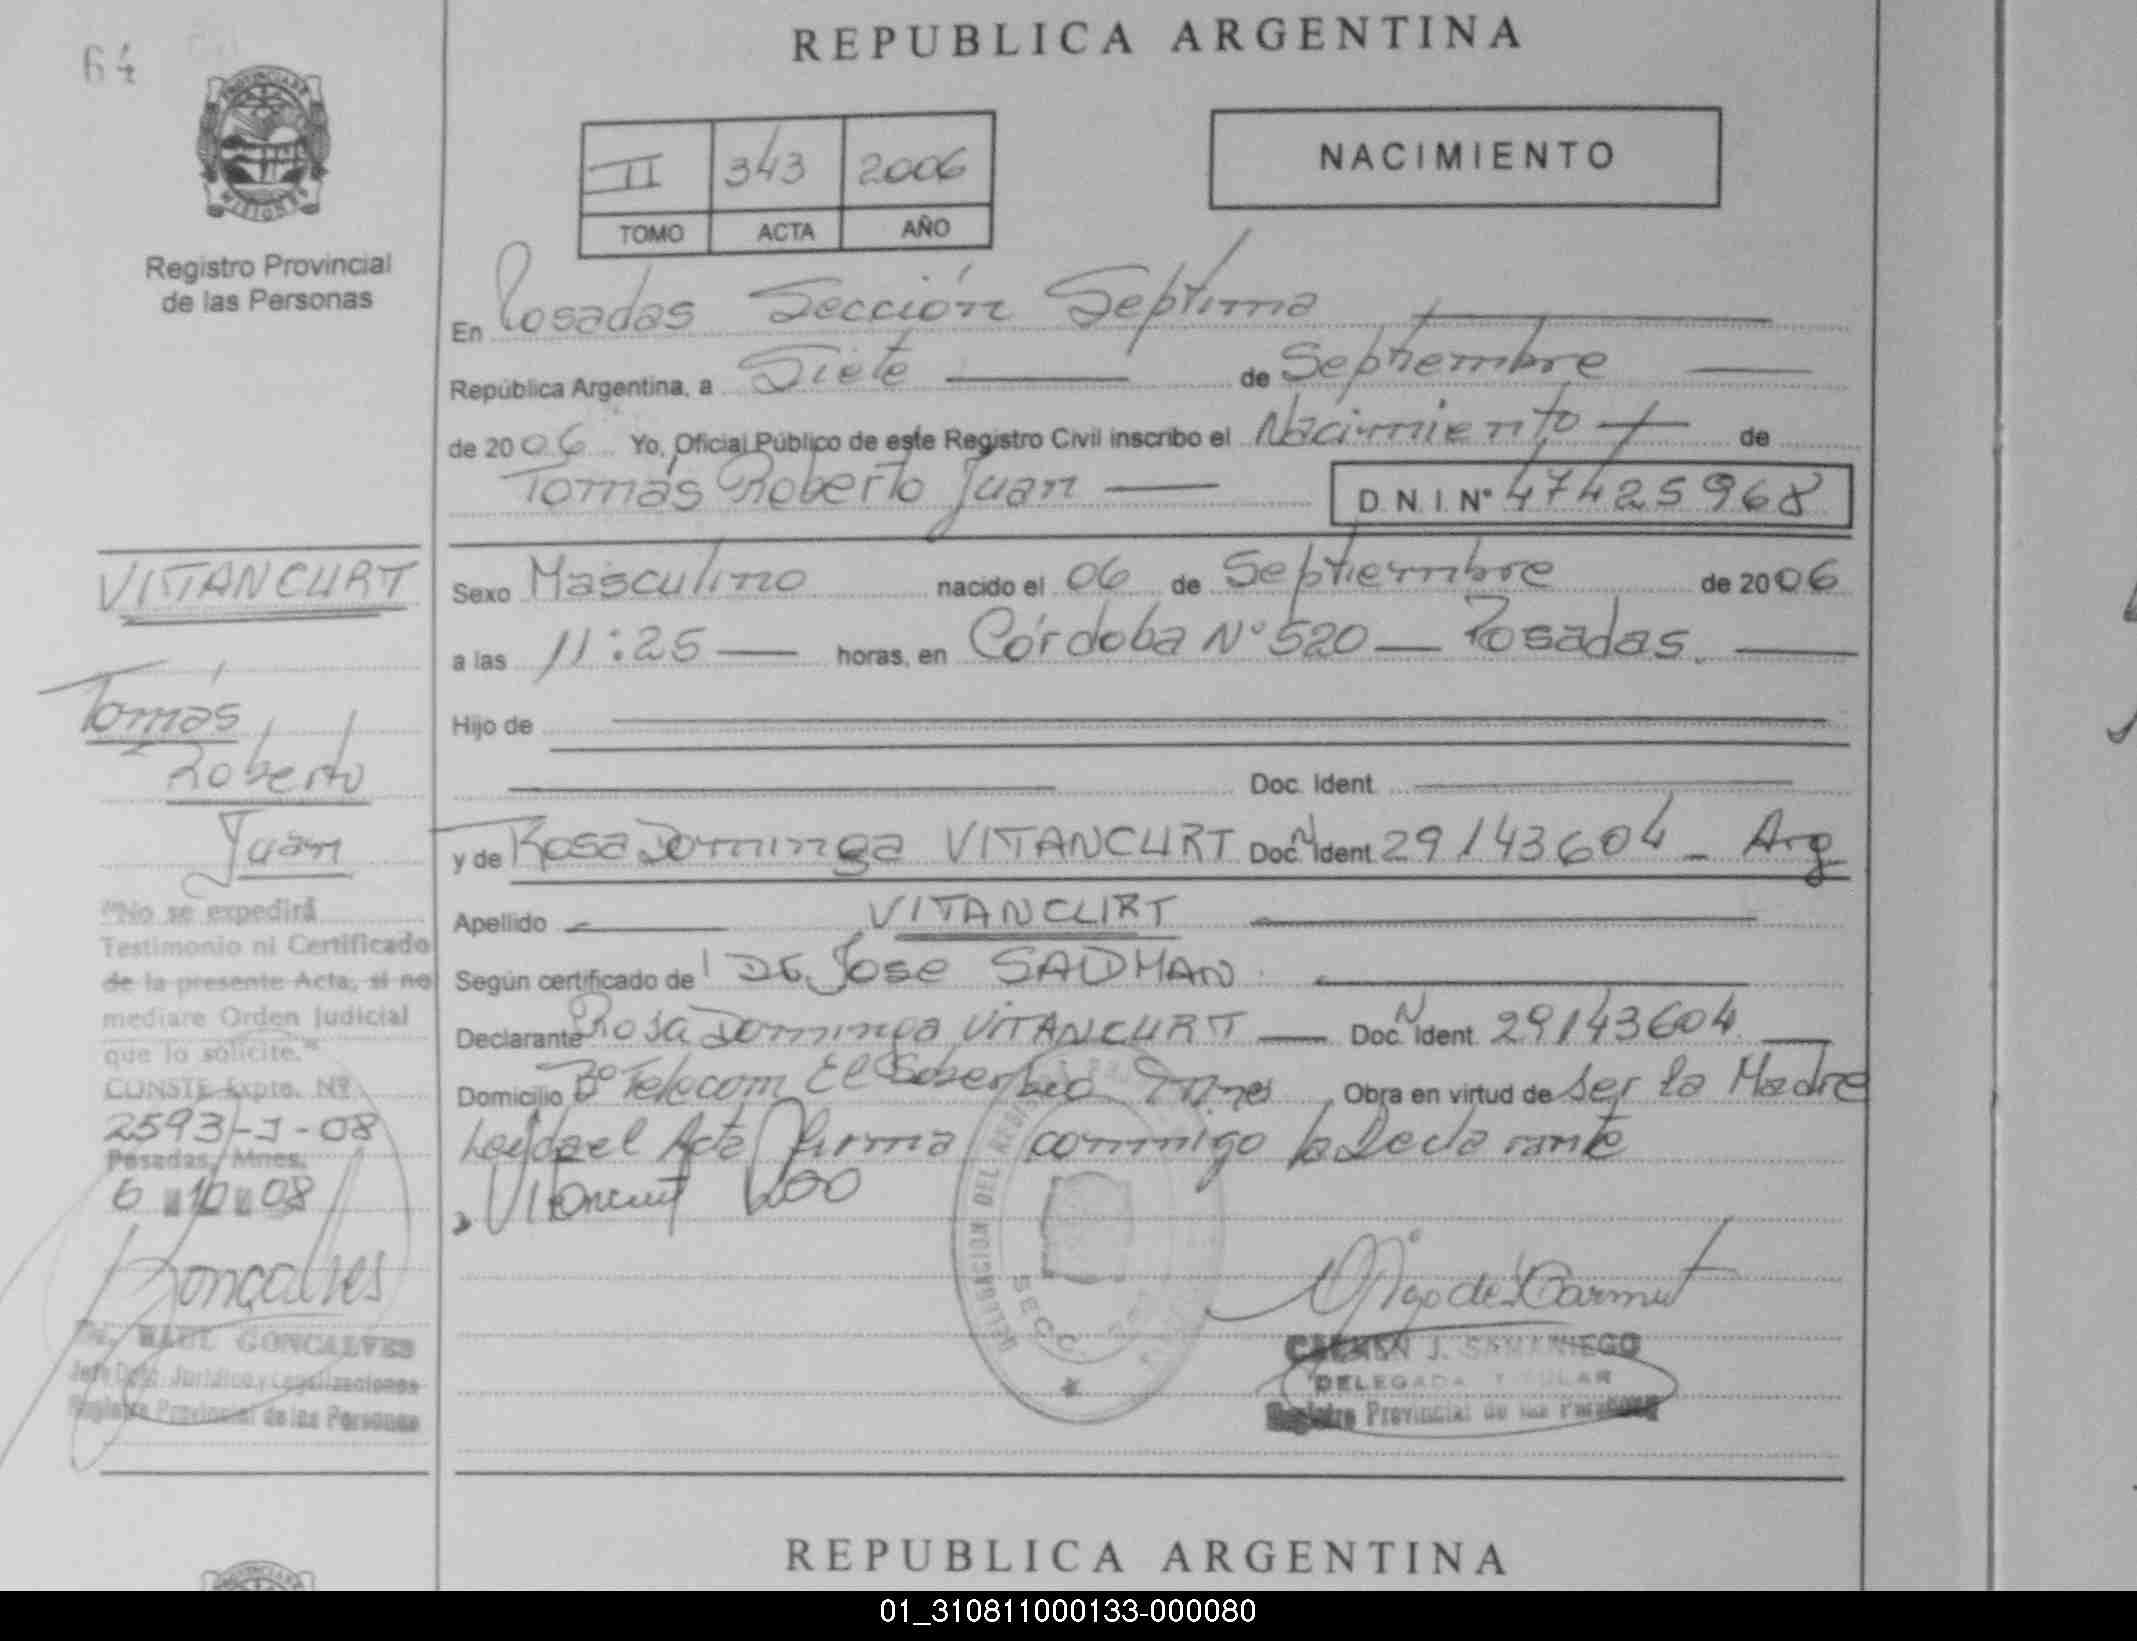 64
REPUBLICA ARGENTINA
II 343 2006
TOMO ACTA AÑO
NACIMIENTO
Registro Provincial
de las Personas
En Posadas Sección Septima
República Argentina, a Siete de Septiembre
de 2006 Yo, Oficial Público de este Registro Civil inscribo el Nacimiento de
Tomás Roberto Juan D.N.I. N° 47425968
VITANCURT
Tomás
Roberto
Juan
Sexo Masculino nacido el 06 de Septiembre de 2006
a las 11:25 horas, en Córdoba N° 520 — Posadas.
Hijo de
Doc. Ident.
y de Rosa Dominga VITANCURT Doc. N Ident. 29143604 - Arg
Apellido VITANCURT
Según certificado de Jose SAIDMAN
Declarante Rosa Dominga VITANCURT Doc. N Ident. 29143604
Domicilio B° Telecom El Soberbio Mnes Obra en virtud de ser la Madre
Leida el Acta firma conmigo la Declarante
"No se expedirá
Testimonio ni Certificado
de la presente Acta, si no
mediare Orden Judicial
que lo solicite."
CONSTE Expte. Nº
2593-J-08
Posadas, Mnes.
6 10 08
Goncalves
RAUL GONCALVES
Jefe Dpto. Jurídico y Legalizaciones
Registro Provincial de las Personas
Vitancurt
DELEGACION DEL REGIS
SECC.
CARMEN J. SAMANIEGO
DELEGADA TITULAR
Registro Provincial de las Personas
REPUBLICA ARGENTINA
01_310811000133-000080